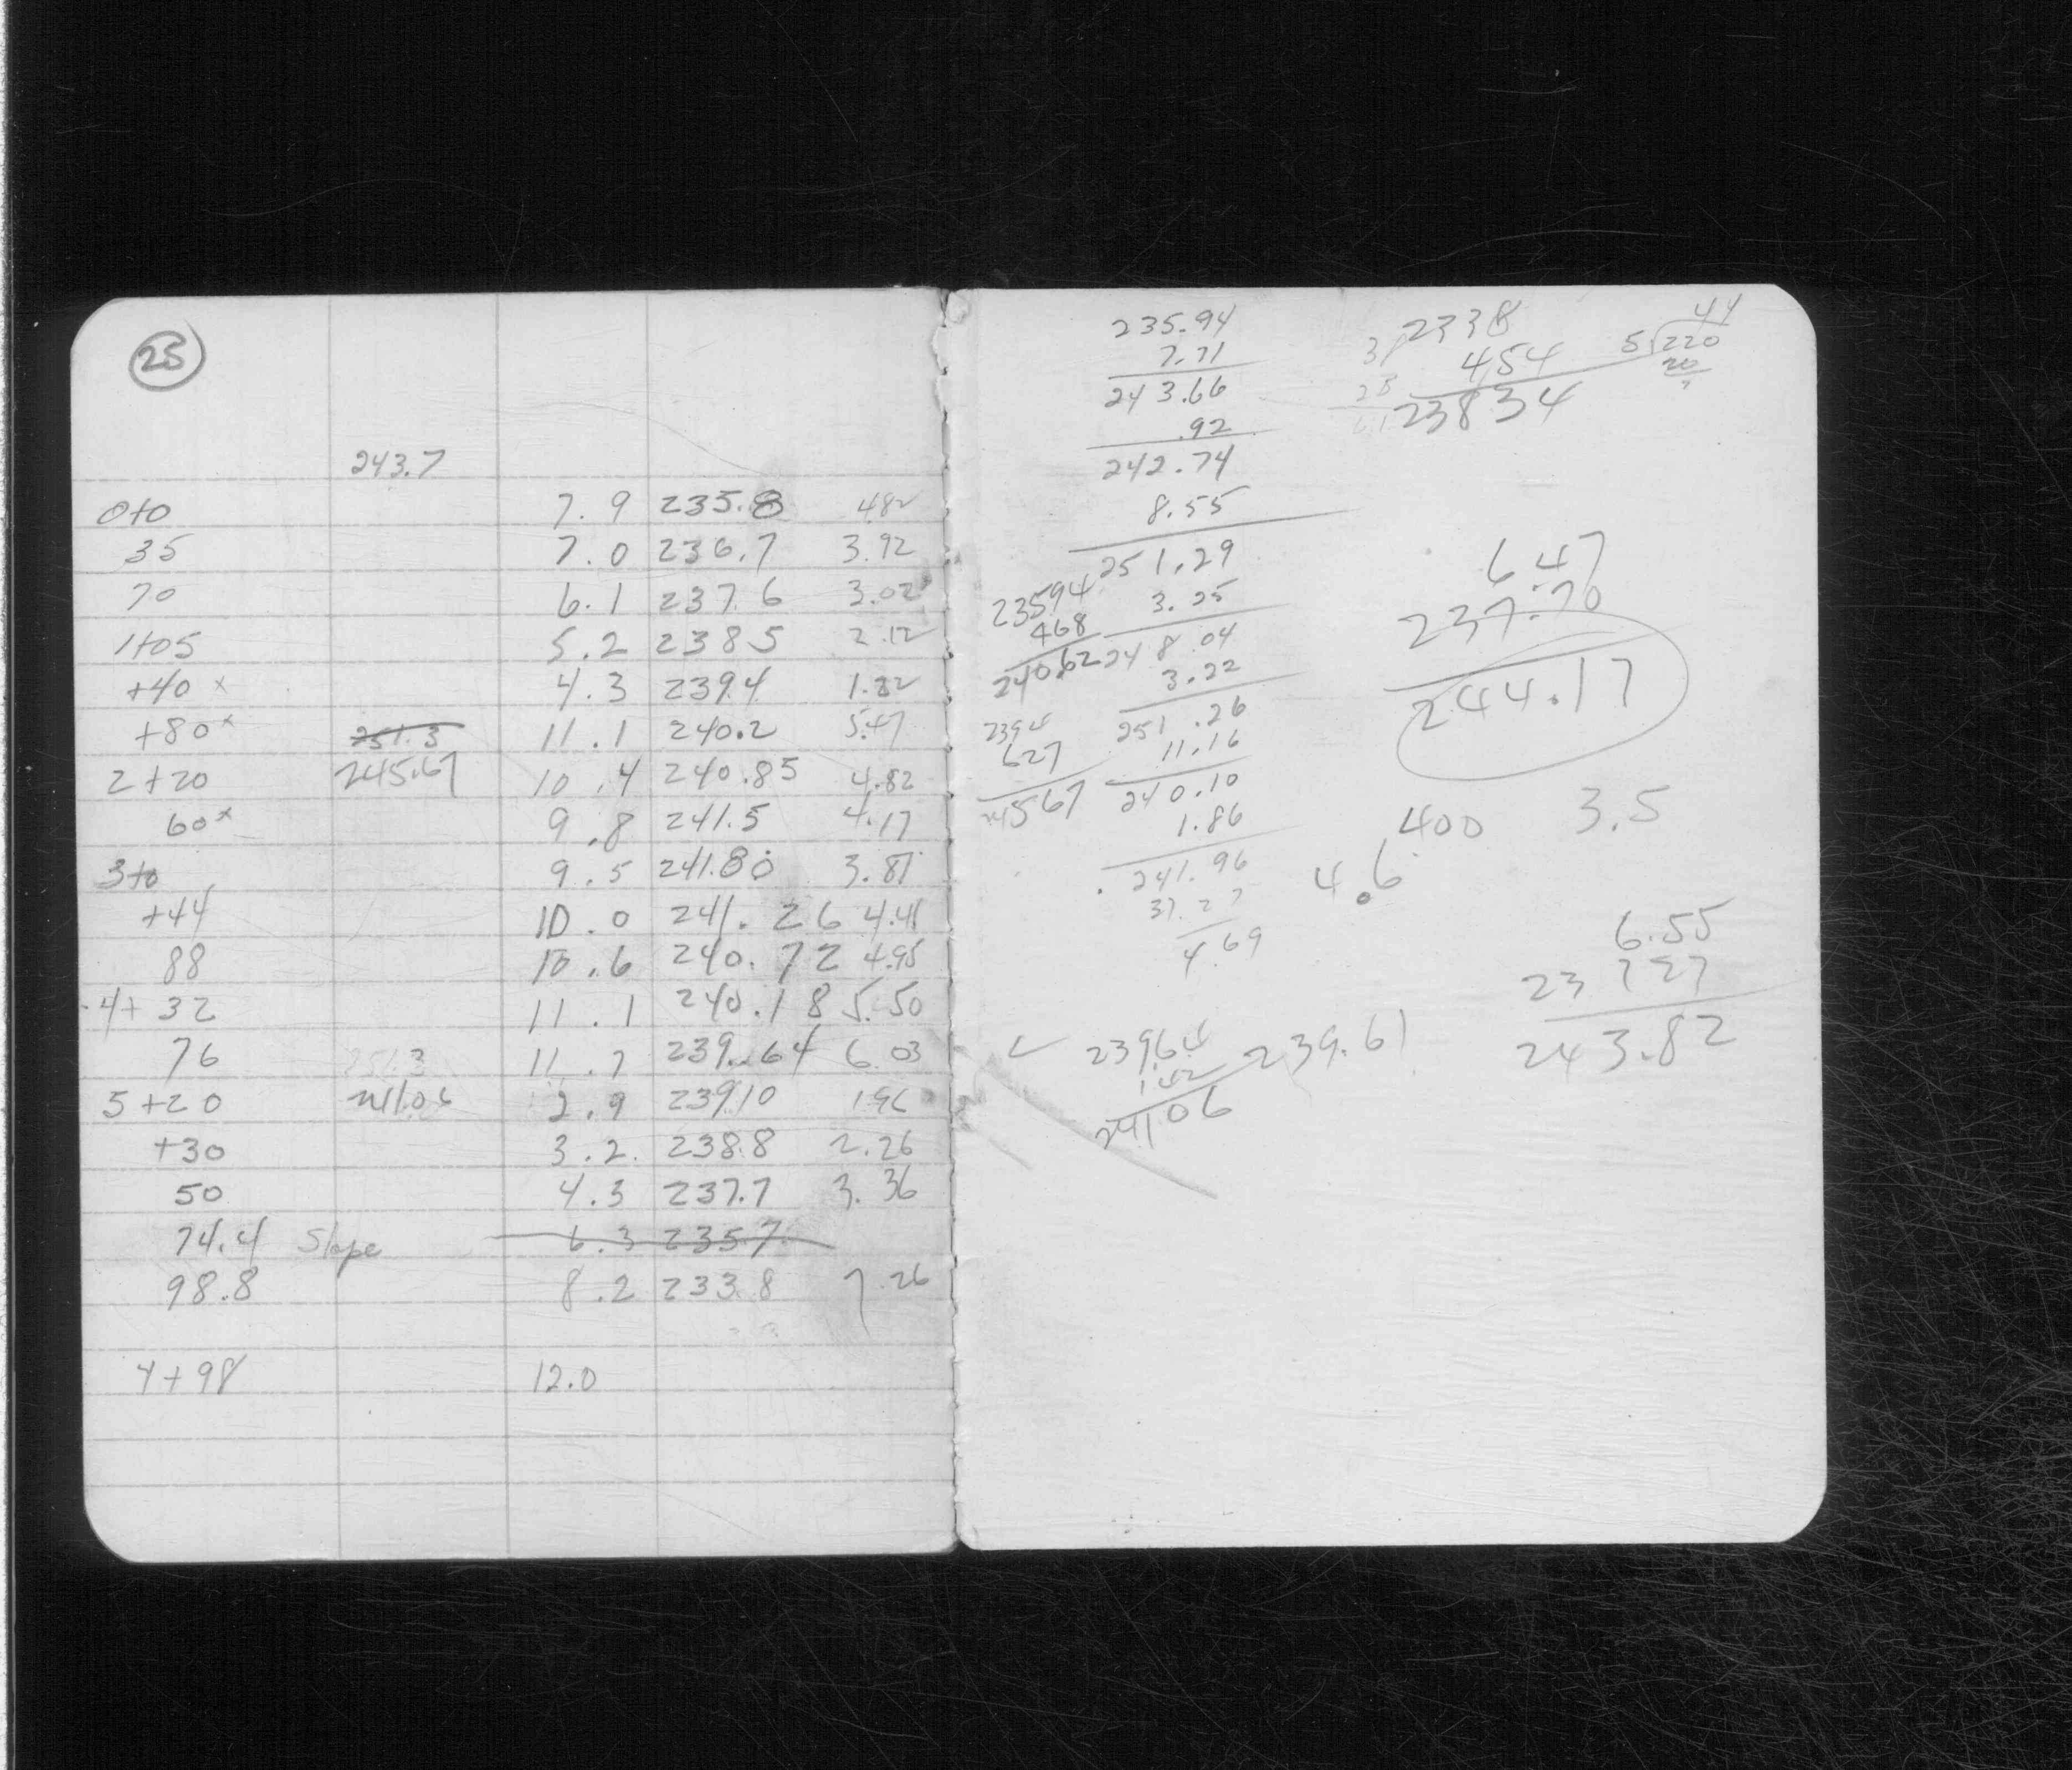 25
243.7
0+0 7.9 235.8 4.82
35 7.0 236.7 3.92
70 6.1 237.6 3.02
1+05 5.2 2385 2.12
+40 x 4.3 239.4 1.22
+80 x 251.3 11.1 240.2 5.47
2+20 245.67 10.4 240.85 4.82
60 x 9.8 241.5 4.17
3+0 9.5 241.80 3.87
+44 10.0 241.26 4.41
88 10.6 240.72 4.95
4+32 11.1 240.18 5.50
76 251.3 11.7 239.64 6.03
5+20 241.06 2.9 239.10 1.96
+30 3.2 238.8 2.26
50 4.3 237.7 3.36
74.4 Slope 6.3 235.7
98.8 8.2 233.8 7.26
4+98 12.0
235.94
7.71
243.66
.92
242.74
8.55
251.29
3.25
248.04
3.22
251.26
11.16
240.10
1.86
241.96
37.27
4.69
23594
468
240.62
239.4
627
24567
2338
454
23834
44
5 220
20
647
237.70
244.17
400 3.5
4.6
6.55
23 727
243.82
239.64 239.61
1.42
241.06